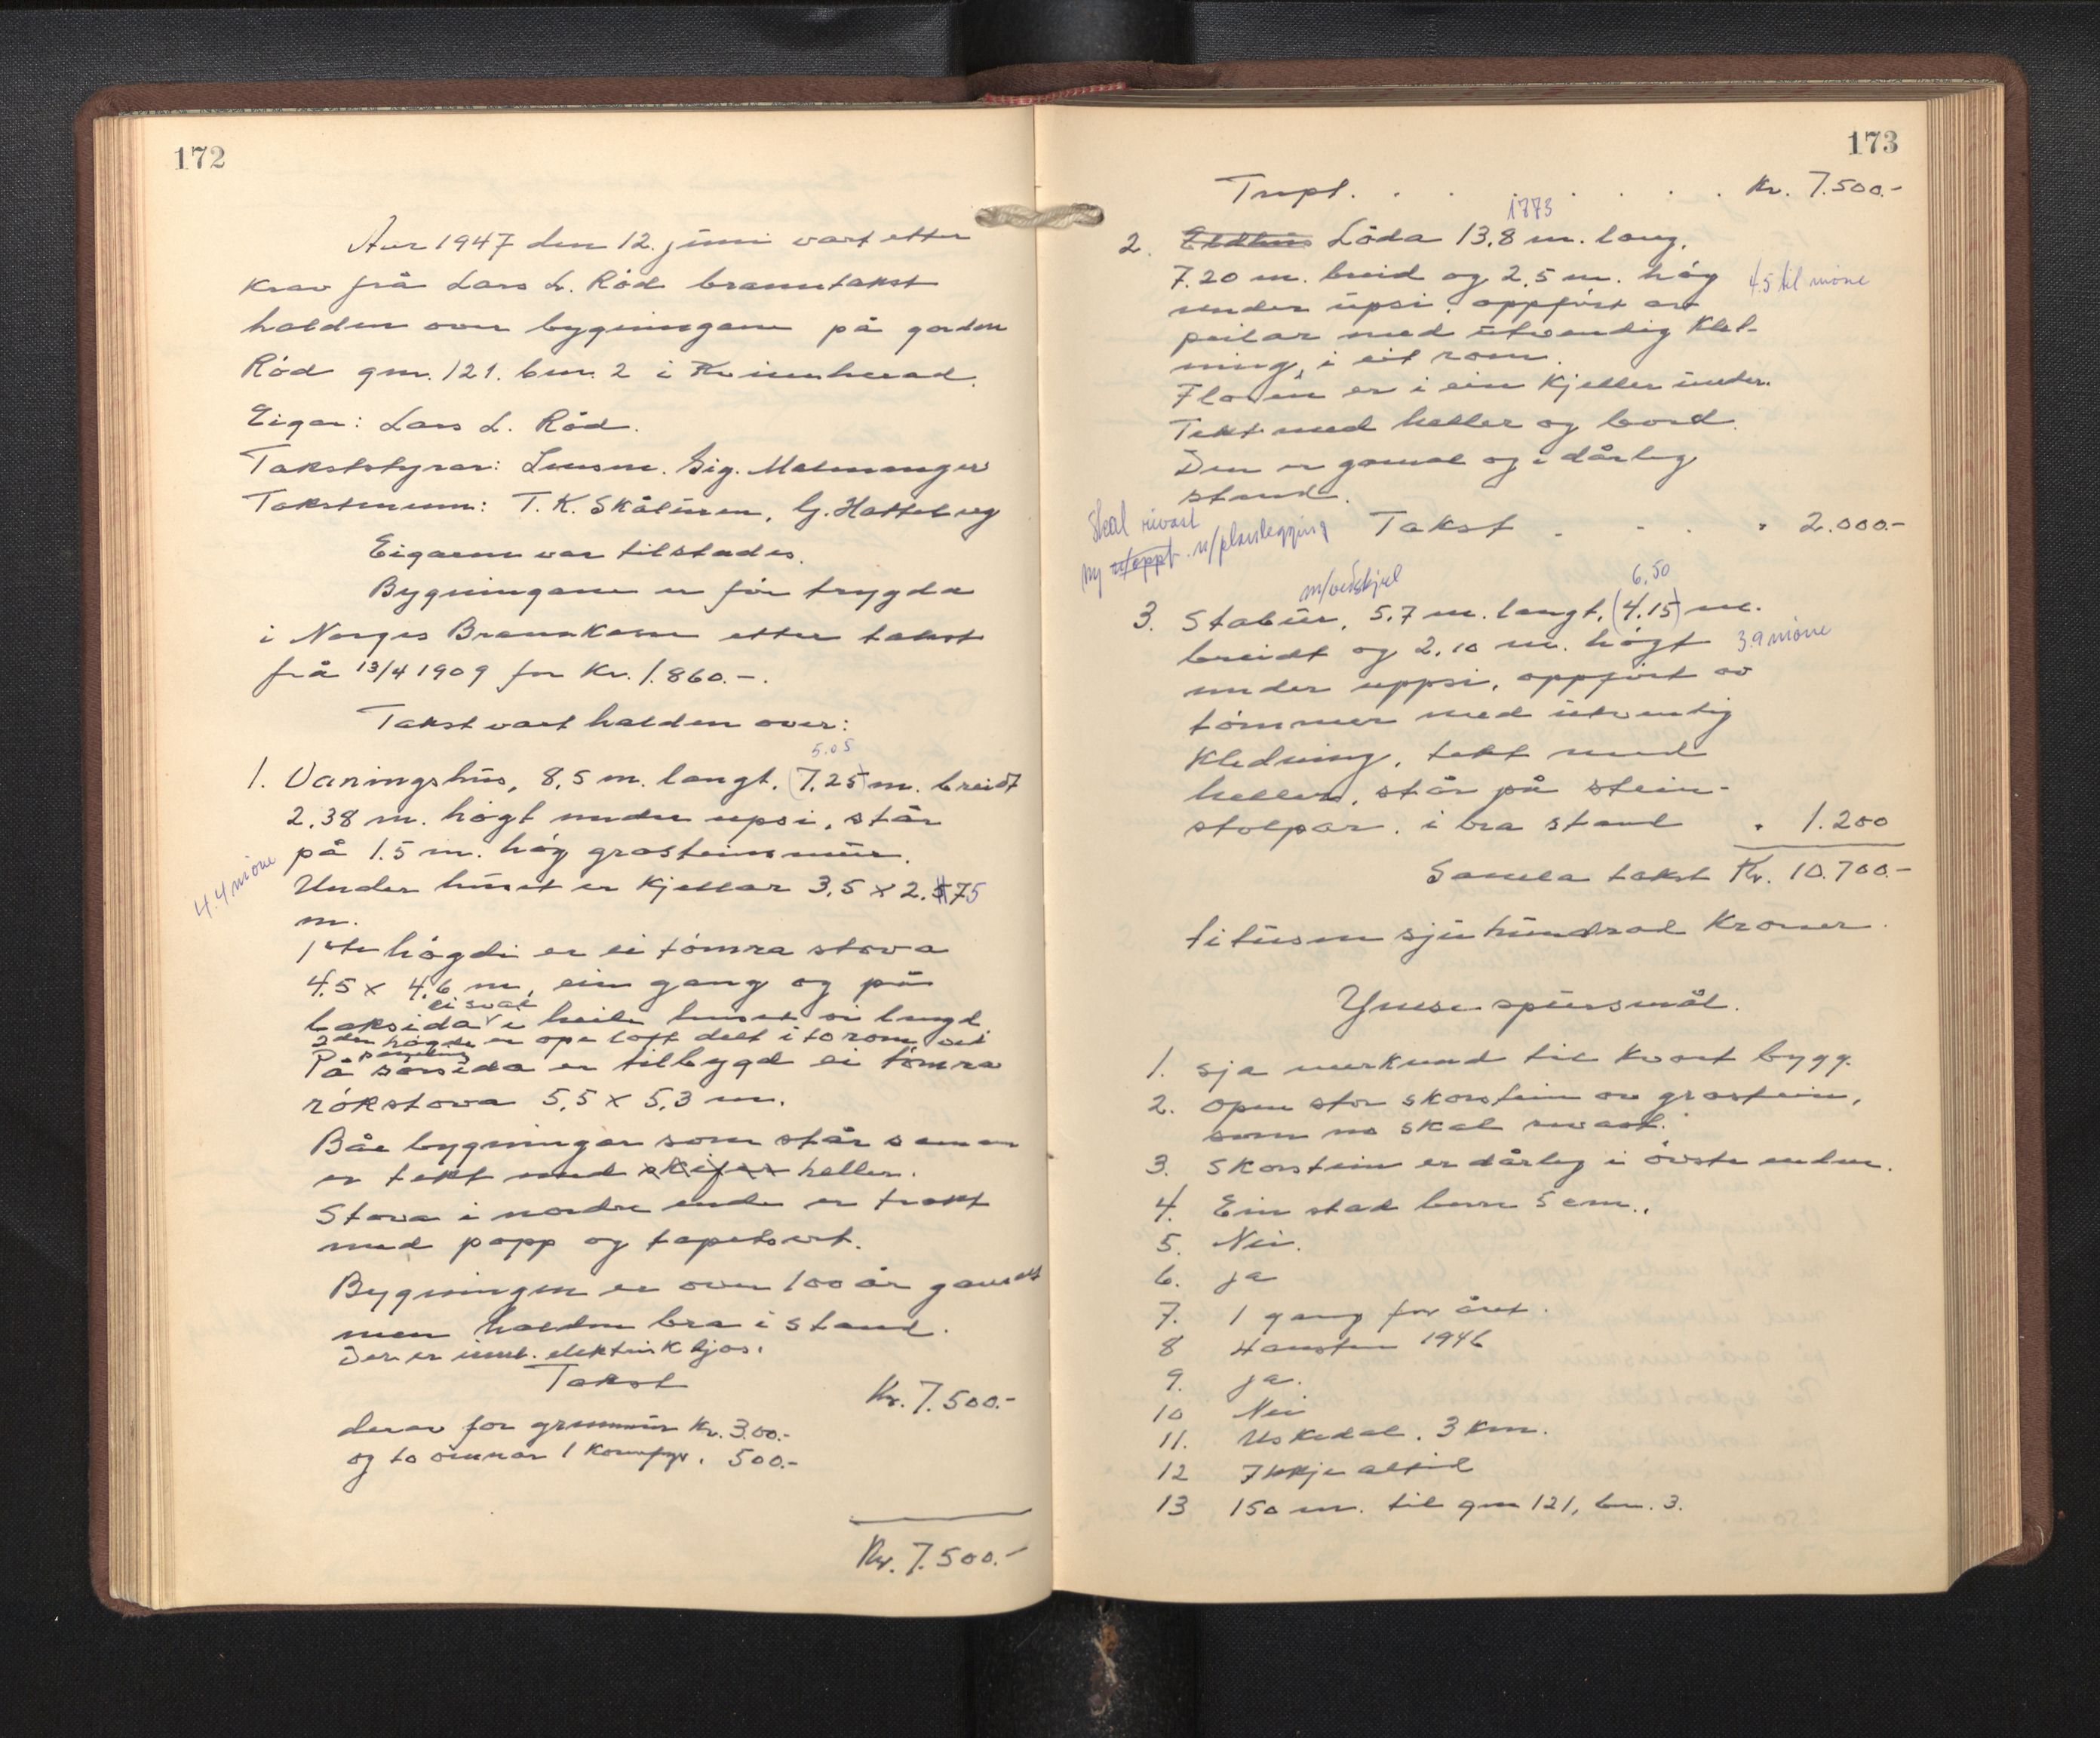 172
Aar 1947 den 12. juni vart etter
krav frå Lars L. Röd branntakst
halden over bygningane på garden
Röd gnr. 121. bnr. 2 i Kvinnherad.
Eigar: Lars L. Röd.
Takststyrar: Lensm. Sig. Malmanger
Takstmenn: T. K. Skålnren, G. Hatteberg
Eigaren var tilstades.
Bygningane er för trygda
i Norges Brannkasse etter takst
frå 13/4 1909 for Kr. 1.860.-.
Takst vart halden over:
5.05
1. Vaningshus, 8,5 m. langt, (7,25) m. breidt
2,38 m. högt under upsi, står
på 1.5 m. hög grasteinsmur.
4.4 möne
Under huset er kjellar 3,5 x 2.75
m.
1ste högdi er ei tömra stova
4,5 x 4,6 m, ein gang og på
ei sval
baksida i heile huset si lengd.
2dre högde er ope loft delt i to rom ved
paneling
På sörsida er tilbygd ei tömra
rökstova 5,5 x 5,3 m.
Båe bygningar som står saman
er tekt med skifer heller.
Stova i nordre ende er trekt
med papp og tapetsert.
Bygningen er over 100 år gamalt
men halden bra i stand.
Der er innl. elektrisk ljos.
Takst Kr. 7.500.-
derav for grunnmur Kr. 300.-
og to omnar 1 komfyr. 500.-
Kr. 7.500.-
173
Trnpt. . . . . . . . Kr. 7.500.-
1873
2. Eldhus Löda 13,8 m. lang,
7.20 m. breid og 2,5 m. hög 4.5 til möne
under upsi, oppfört av
peilar med utvendig kled-
ning, i eit rom.
Floren er i ein kjeller under.
Tekt med heller og bord.
Den er gamal og i dårleg
stand.
Skal rivast
ny u/oppf. u/planlegging
Takst . - . . " 2.000.-
m/vedskjul 6,50
3. Stabur, 5,7 m. langt, (4,15) m.
breidt og 2,10 m. högt 3.9 möne
under uppsi, oppfört av
tömmer med utvendig
kledning, tekt med
heller, står på stein-
stolpar, i bra stand " 1.200
Samla takst Kr. 10.700.-
titusen sjuhundrad kroner.
Ymse spursmål.
1. Sjå merknad til kvart bygg.
2. Open stor skorstein av grastein,
som no skal rivast.
3. Skorstein er dårleg i övste enden.
4. Ein stad berre 5 cm..
5. Nei.
6. ja
7. 1 gang for året.
8 Hausten 1946
9. ja.
10 Nei
11. Uskedal, 3 km.
12 Ikkje altid
13 150 m. til gnr 121, bnr. 3.